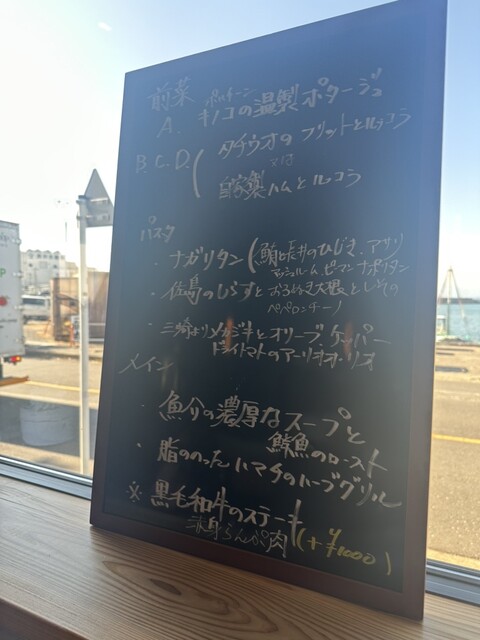 前菜
ポルチーニ
A. キノコの温製ポタージュ
B.C.D. ( タチウオのフリットとルッコラ
又は
自家製ハムとルッコラ
パスタ
・ナガリタン (鮪と長井のひじき、アサリ
マッシュルーム、ピーマン ナポリタン
・佐島のしらすとおろしぬき大根としその
ペペロンチーノ
・三崎よりメカジキとオリーブ ケーパー
ドライトマトのアーリオオーリオ
メイン
・魚介の濃厚なスープと
鮮魚のロースト
・脂ののったハマチのハーブグリル
※ 黒毛和牛のステーキ
赤身らんぷ肉 (+¥1000)